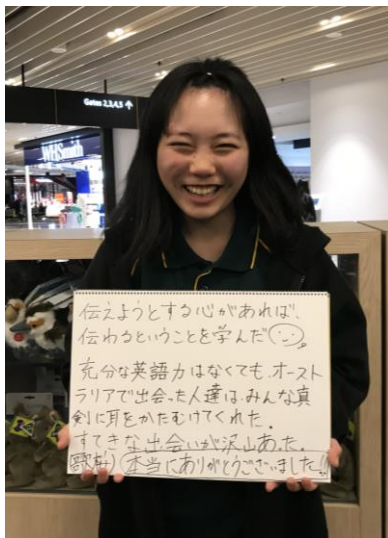 Gates 2,3,4,5 ↑
WHSmith
伝えようとする心があれば、
伝わるということを学んだ
充分な英語力はなくても、オースト
ラリアで出会った人達は、みんな真
剣に耳をかたむけてくれた。
すてきな出会いが沢山あった。
本当にありがとうございました!!